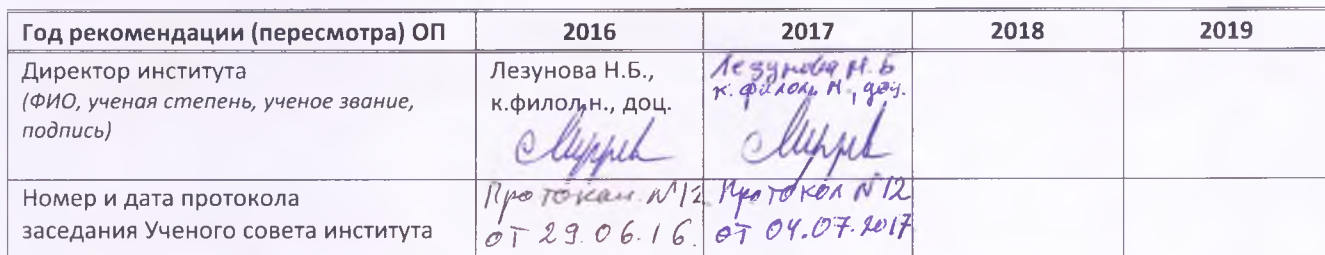 Год рекомендации (пересмотра) ОП 2016 2017 2018 2019
Директор института
(ФИО, ученая степень, ученое звание,
подпись)
Лезунова Н.Б.,
к.филол.н., доц.
Лезунова Н.Б
к. филол. н., доц.
Номер и дата протокола
заседания Ученого совета института
Протокол №12
от 29.06.16.
Протокол №12
от 04.07.2017